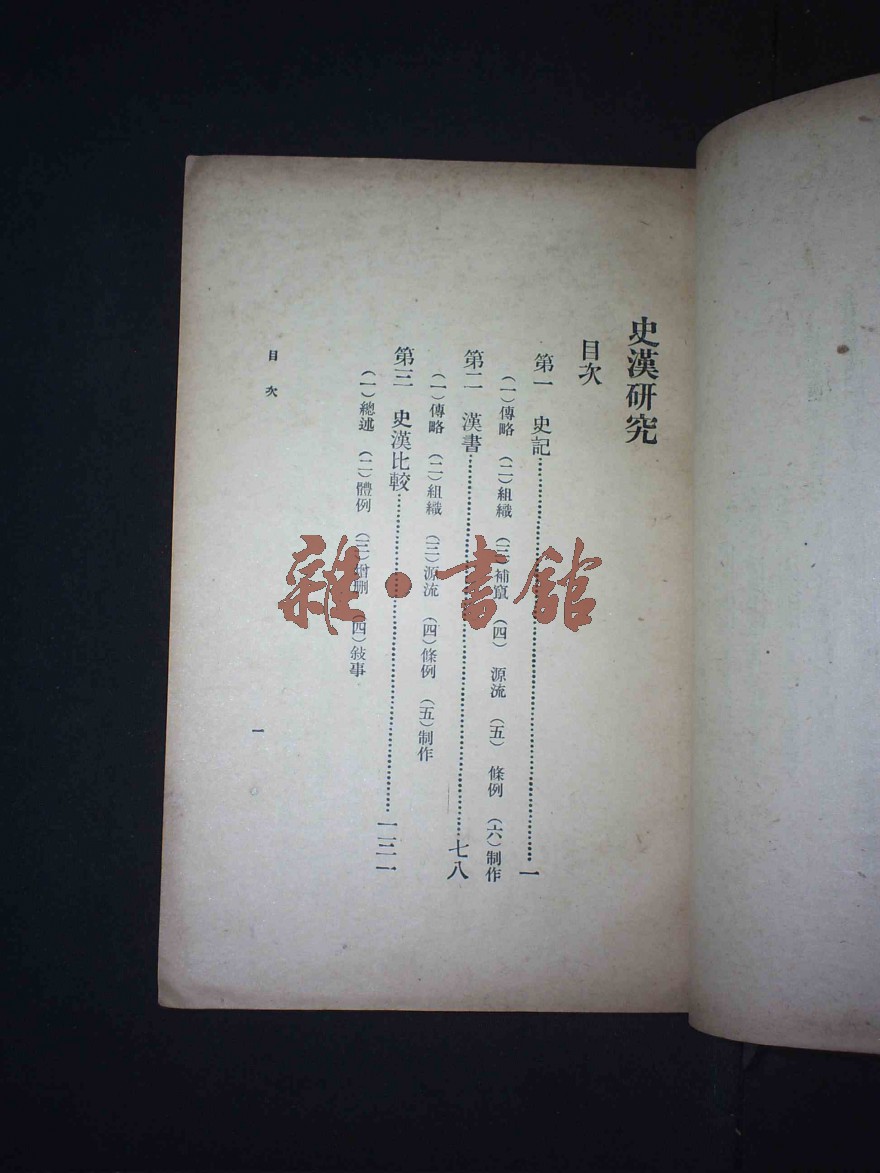 史漢研究
目次
第一 史記……一
（一）傳略 （二）組織 （三）補竄 （四）源流 （五）條例 （六）制作
第二 漢書……七八
（一）傳略 （二）組織 （三）源流 （四）條例 （五）制作
第三 史漢比較……一三一
（一）總述 （二）體例 （三）增刪 （四）敍事
目次
一
雜·書館